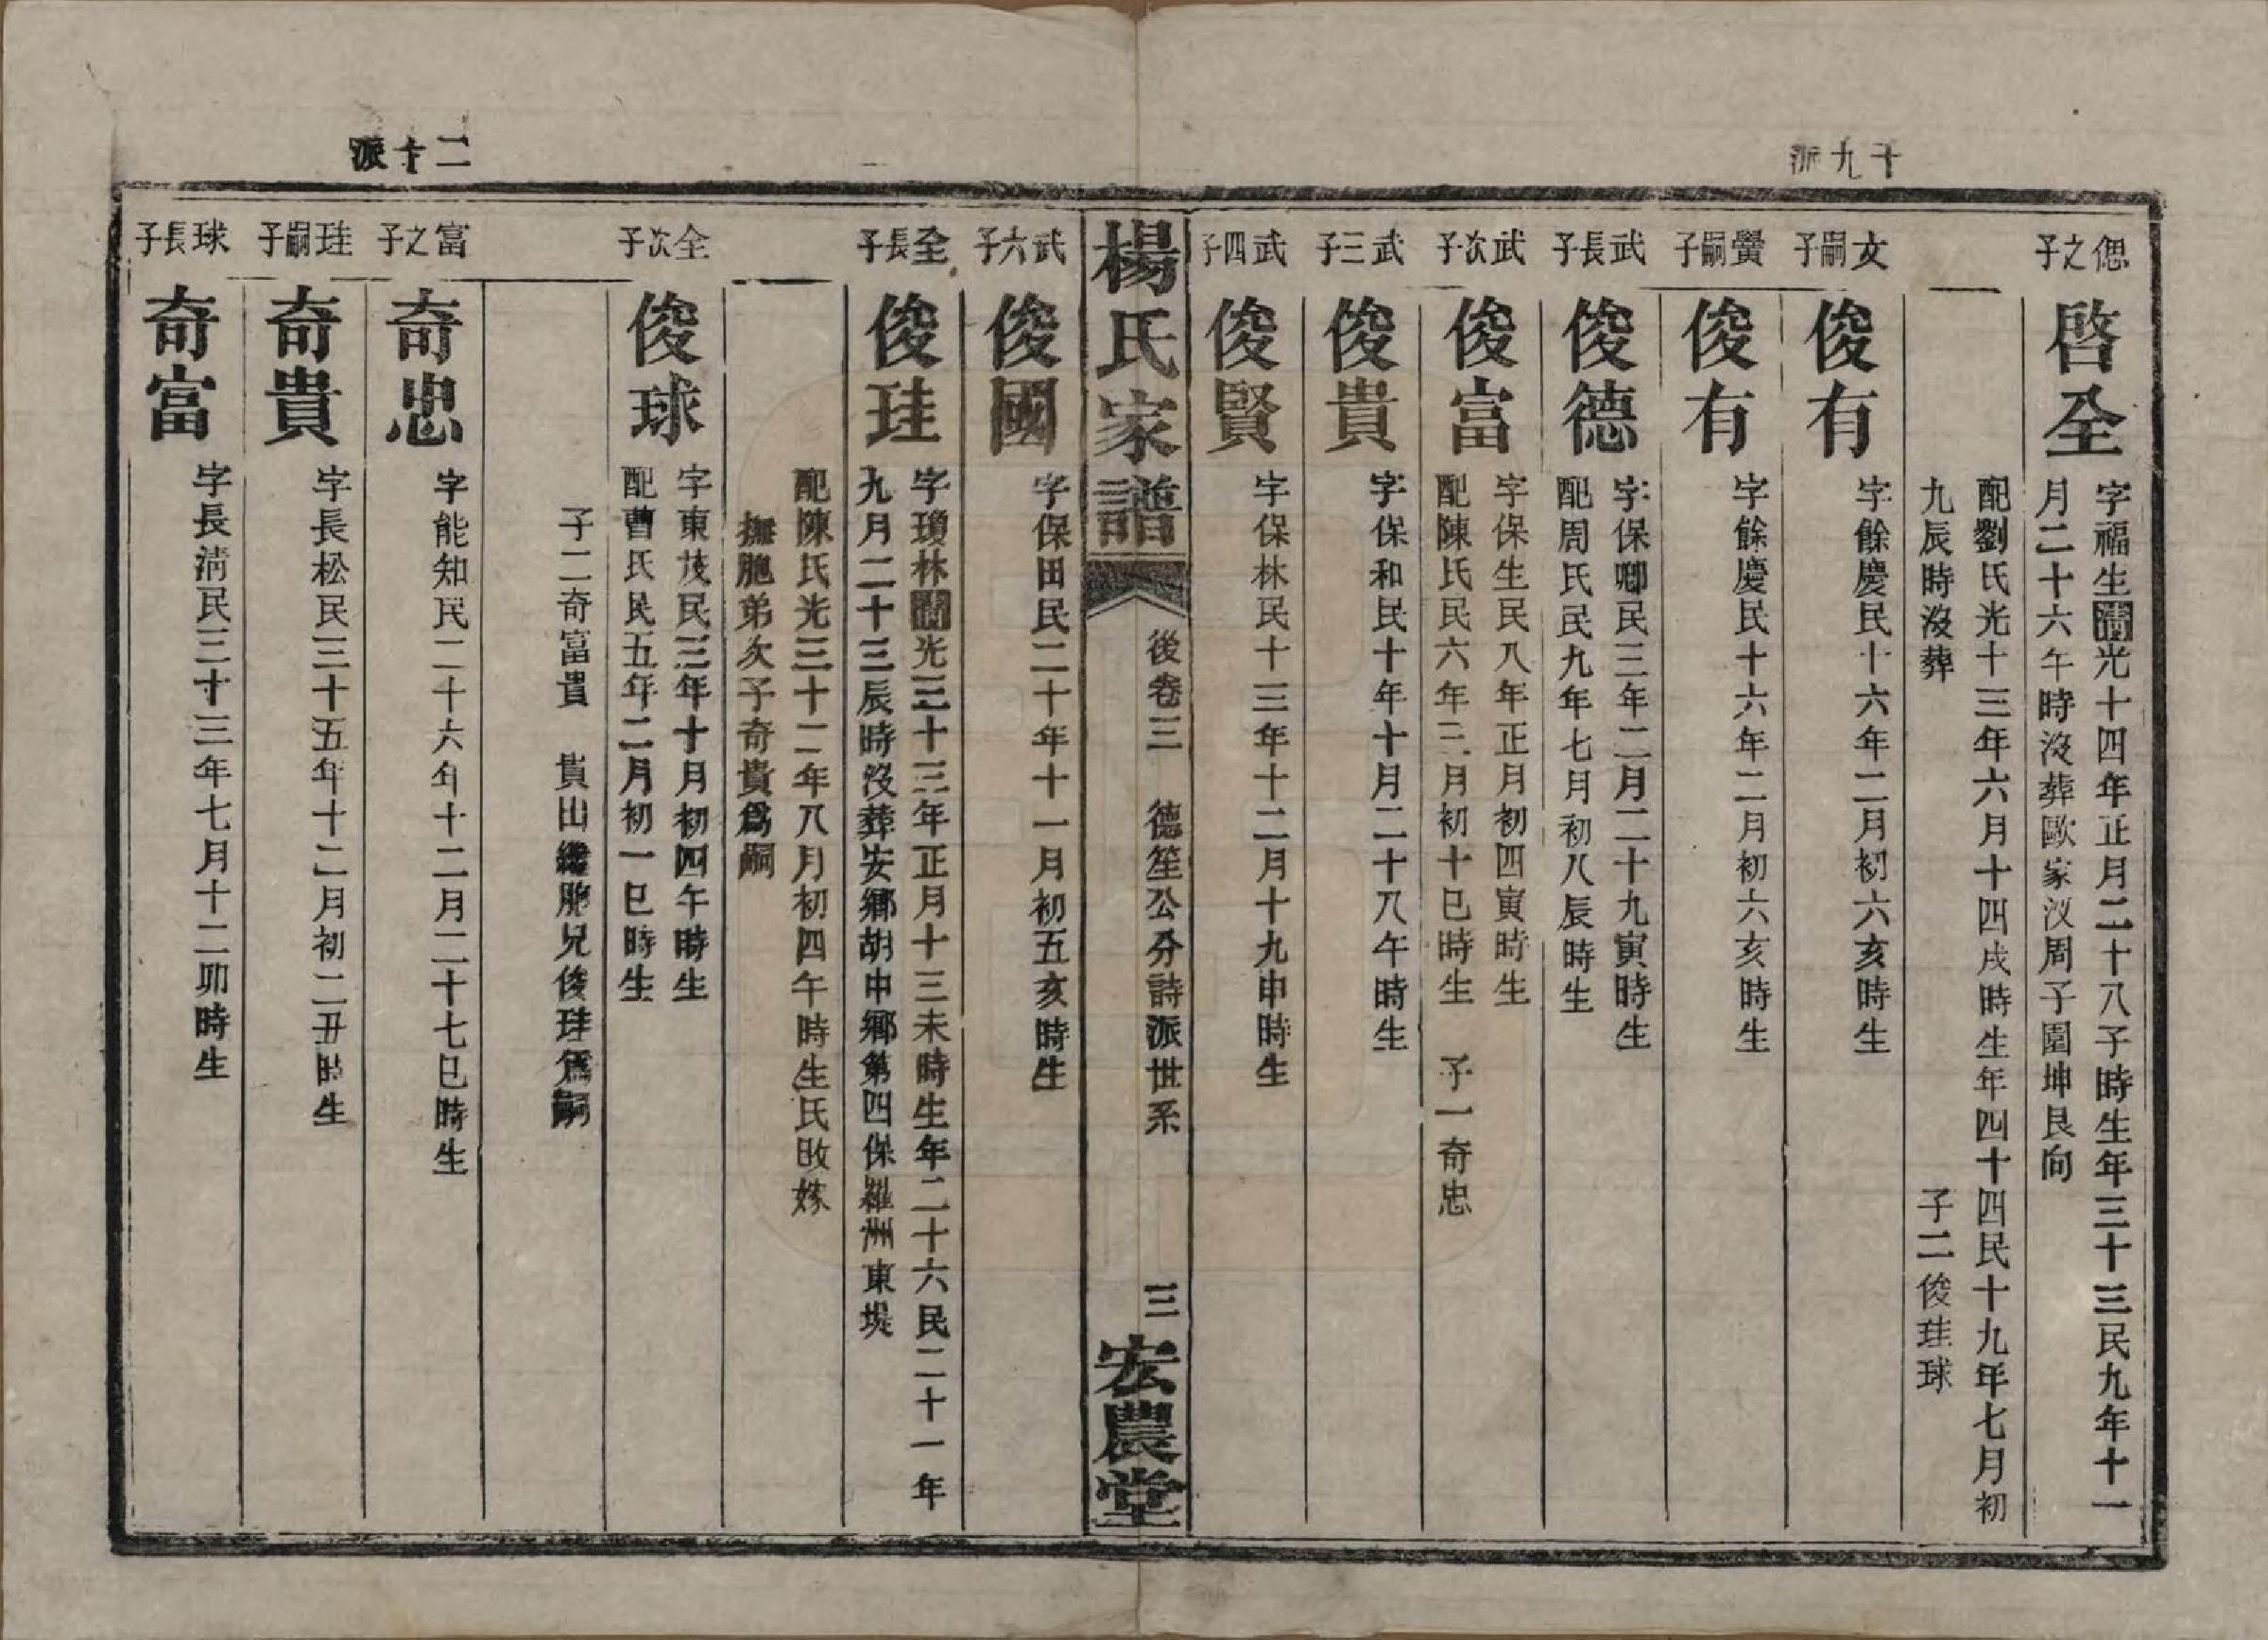 十九派
偲之子
啓全
字福生清光十四年正月二十八子時生年三十三民九年十一
月二十六午時沒葬歐家汊周子園坤艮向
配劉氏光十三年六月十四戌時生年四十四民十九年七月初
九辰時沒葬
子二俊珪球
文嗣子
俊有
字餘慶民十六年二月初六亥時生
黌嗣子
俊有
字餘慶民十六年二月初六亥時生
武長子
俊德
字保卿民三年二月二十九寅時生
配周氏民九年七月初八辰時生
武次子
俊富
字保生民八年正月初四寅時生
配陳氏民六年三月初十巳時生 子一奇忠
武三子
俊貴
字保和民十年十月二十八午時生
武四子
俊賢
字保林民十三年十二月十九申時生
楊氏家譜
後卷三 德笙公分詩派世系
三
宏農堂
武六子
俊國
字保田民二十年十一月初五亥時生
全長子
俊珪
字瓊林清光三十三年正月十三未時生年二十六民二十一年
九月二十三辰時沒葬安鄉胡中鄉第四保羅洲東堤
配陳氏光三十二年八月初四午時生氏改嫁
撫胞弟次子奇貴為嗣
全次子
俊球
字東茂民三年十月初四午時生
配曹氏民五年二月初一巳時生
子二奇富貴 貴出繼胞兄俊珪為嗣
二十派
富之子
奇忠
字能知民二十六年十二月二十七巳時生
珪嗣子
奇貴
字長松民三十五年十二月初二丑時生
球長子
奇富
字長清民三十三年七月十二卯時生